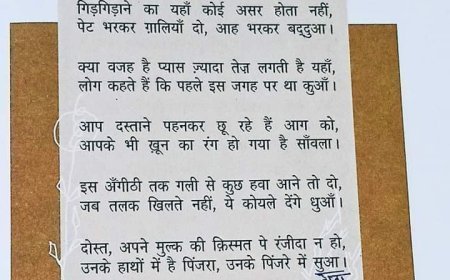 गिड़गिड़ाने का यहाँ कोई असर होता नहीं,
पेट भरकर गालियाँ दो, आह भरकर बद्दुआ।
क्या वजह है प्यास ज़्यादा तेज़ लगती है यहाँ,
लोग कहते हैं कि पहले इस जगह पर था कुआँ।
आप दस्ताने पहनकर छू रहे हैं आग को,
आपके भी ख़ून का रंग हो गया है साँवला।
इस अँगीठी तक गली से कुछ हवा आने तो दो,
जब तलक खिलते नहीं, ये कोयले देंगे धुआँ।
दोस्त, अपने मुल्क की क़िस्मत पे रंजीदा न हो,
उनके हाथों में है पिंजरा, उनके पिंजरे में सुआ।